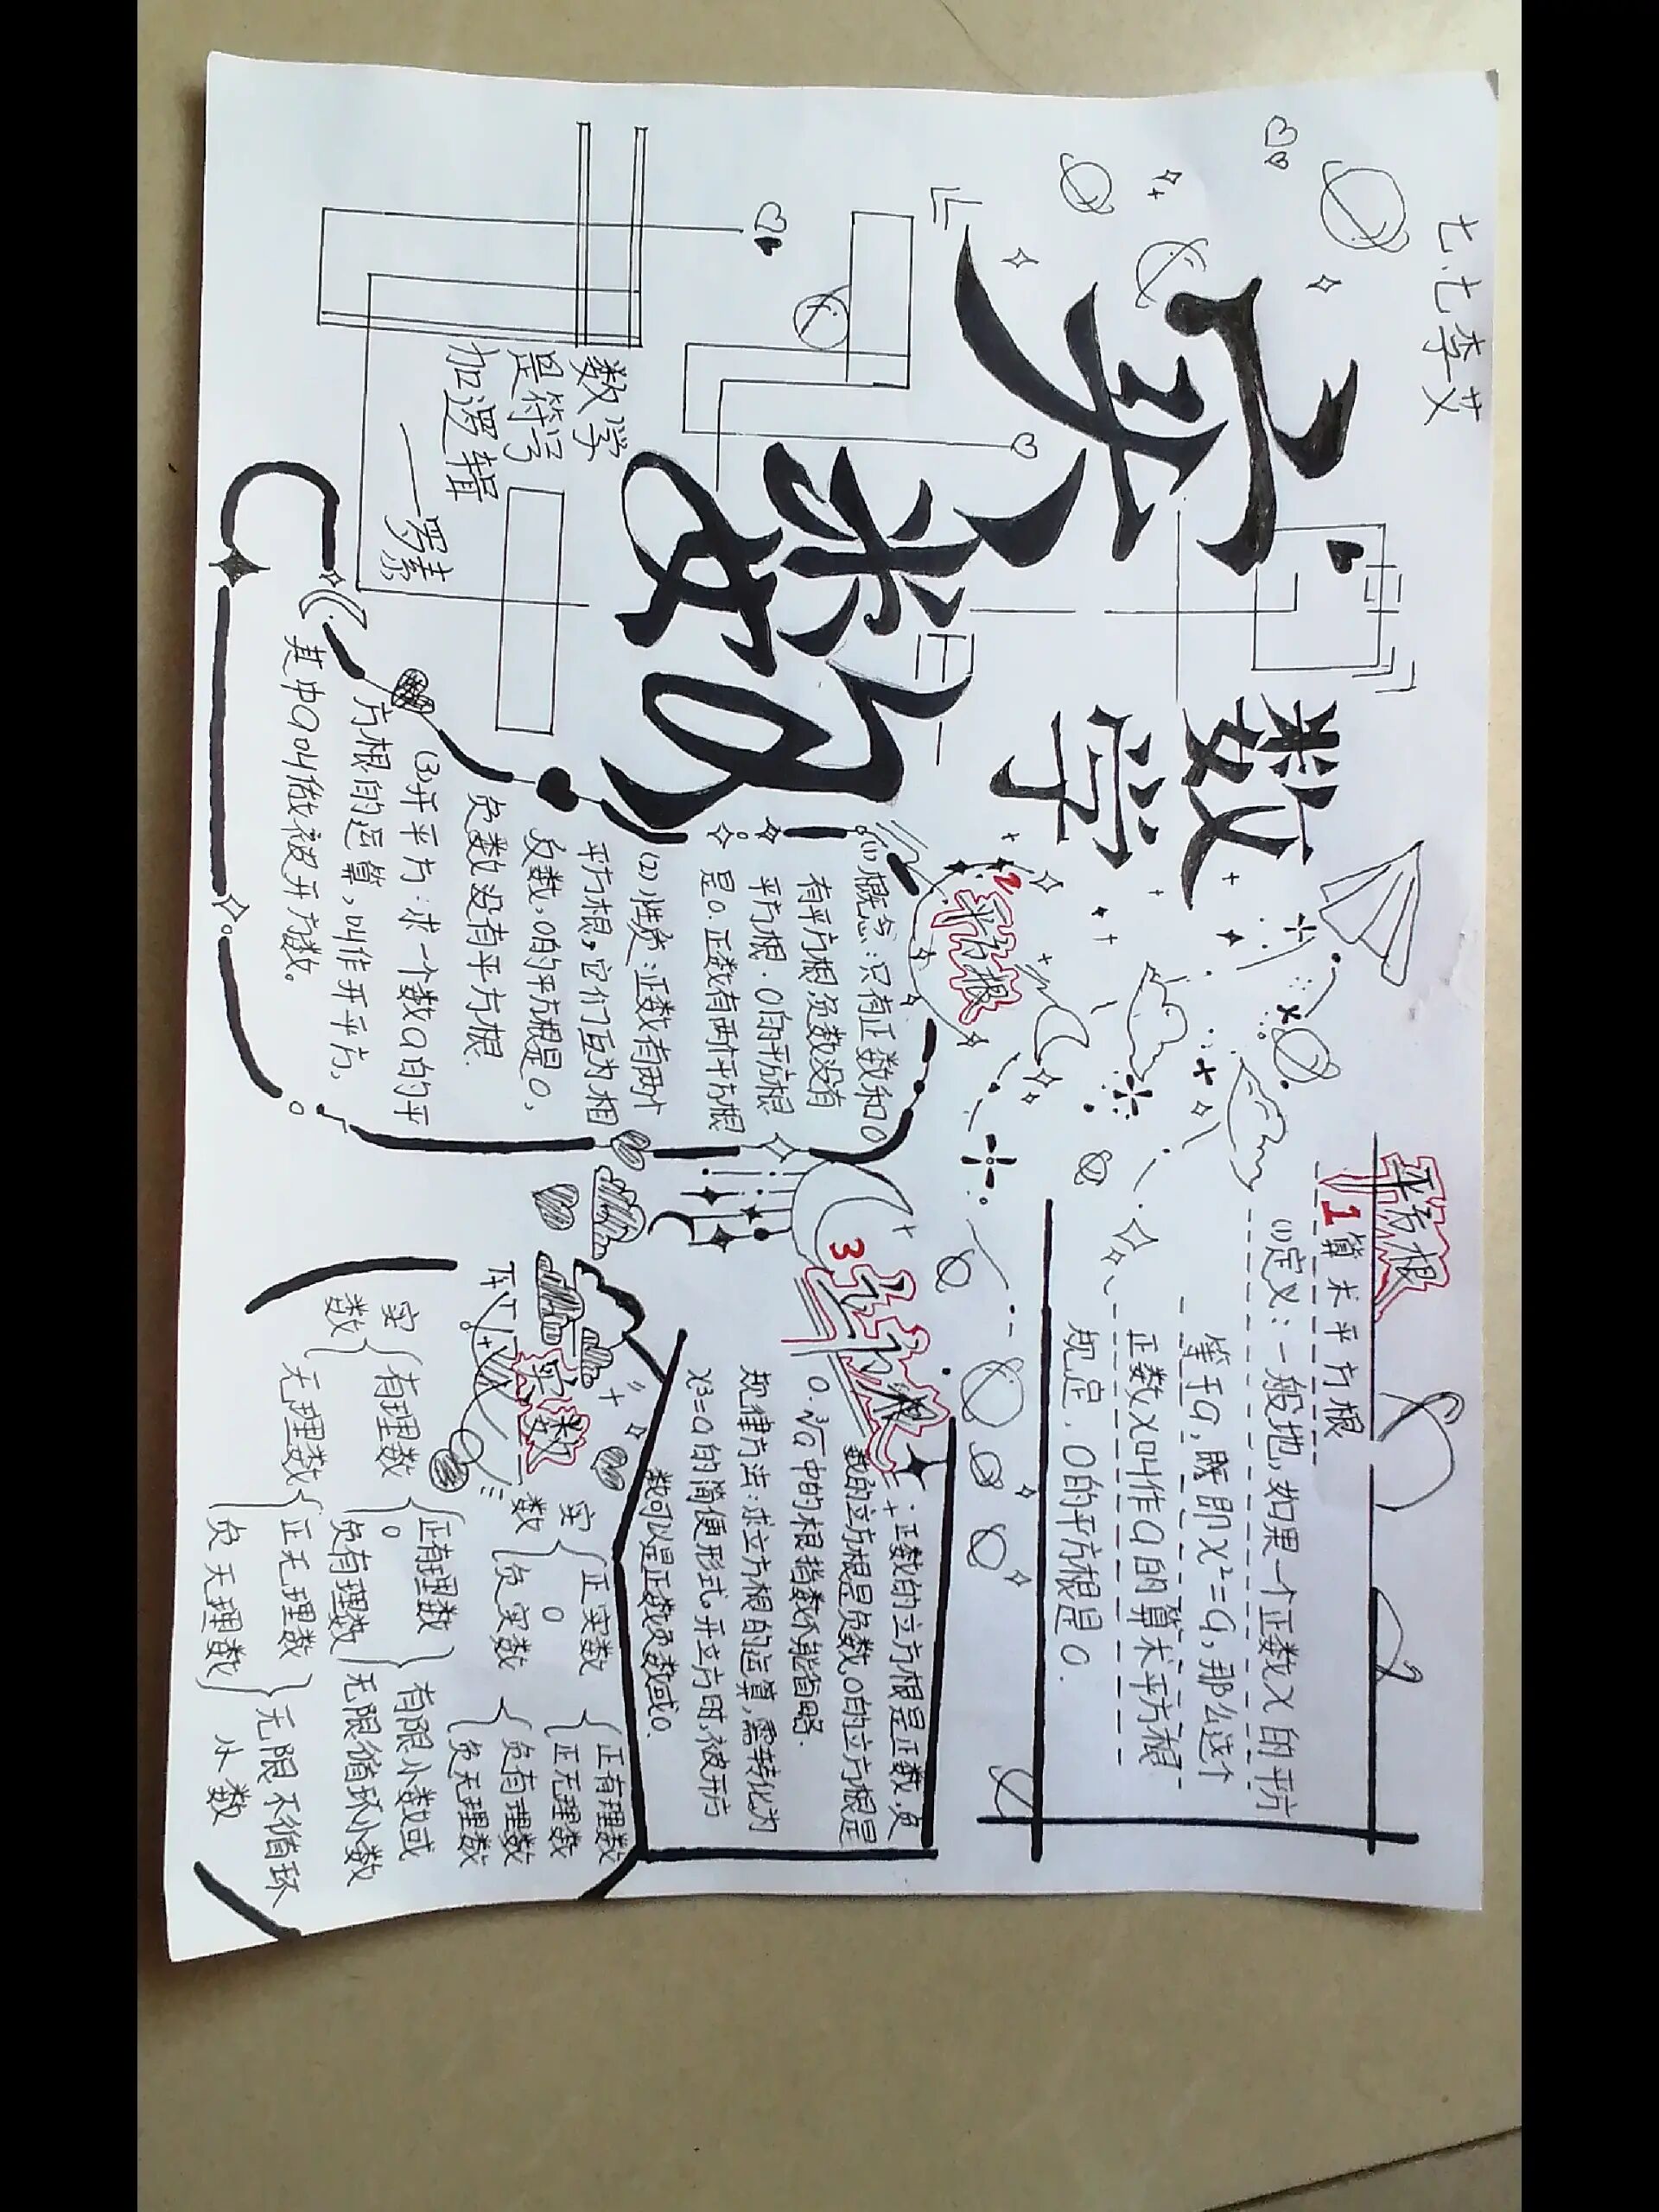 七.七李艾
实数
数学
数学
是符号
加逻辑
——罗素
平方根
1算术平方根
(1)定义:一般地,如果一个正数x的平方
等于a,既即x²=a,那么这个
正数x叫作a的算术平方根
规定.0的平方根是0.
2平方根
(1)概念:只有正数和0
有平方根,负数没有
平方根.0的平方根
是0.正数有两个平方根
(2)性质:正数有两个
平方根,它们互为相
反数,0的平方根是0,
负数没有平方根.
(3)开平方:求一个数a的平
方根的运算,叫作开平方,
其中a叫做被开方数。
3立方根
:正数的立方根是正数,负
数的立方根是负数,0的立方根是
0.³√a中的根指数不能省略.
规律方法:求立方根的运算,需转化为
x³=a的简便形式。开立方时,被开方
数可以是正数负数或0.
实数
实数{正实数{正有理数
正无理数
0
负实数{负有理数
负无理数
实数{有理数{正有理数
0
负有理数}有限小数或
无限循环小数
无理数{正无理数
负无理数}无限不循环
小数